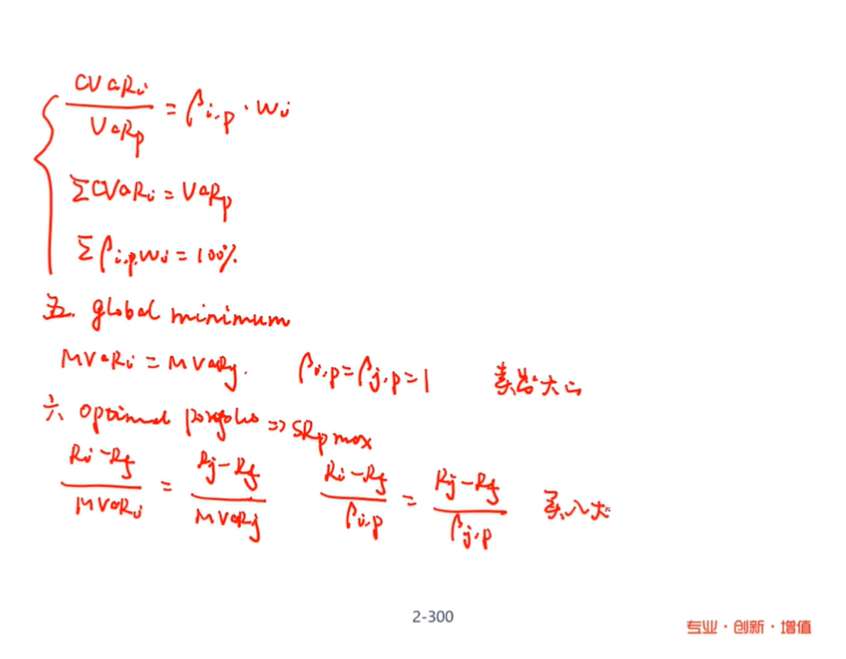 CVaRi / VaRp = βi,p · wi
ΣCVaRi = VaRp
Σβi,p wi = 100%
五. global minimum
MVaRi = MVaRj. βi,p = βj,p = 1
六 optimal portfolio => SRp max
(Ri-Rf) / MVaRi = (Rj-Rf) / MVaRj (Ri-Rf) / βi,p = (Rj-Rf) / βj,p
2-300
专业·创新·增值